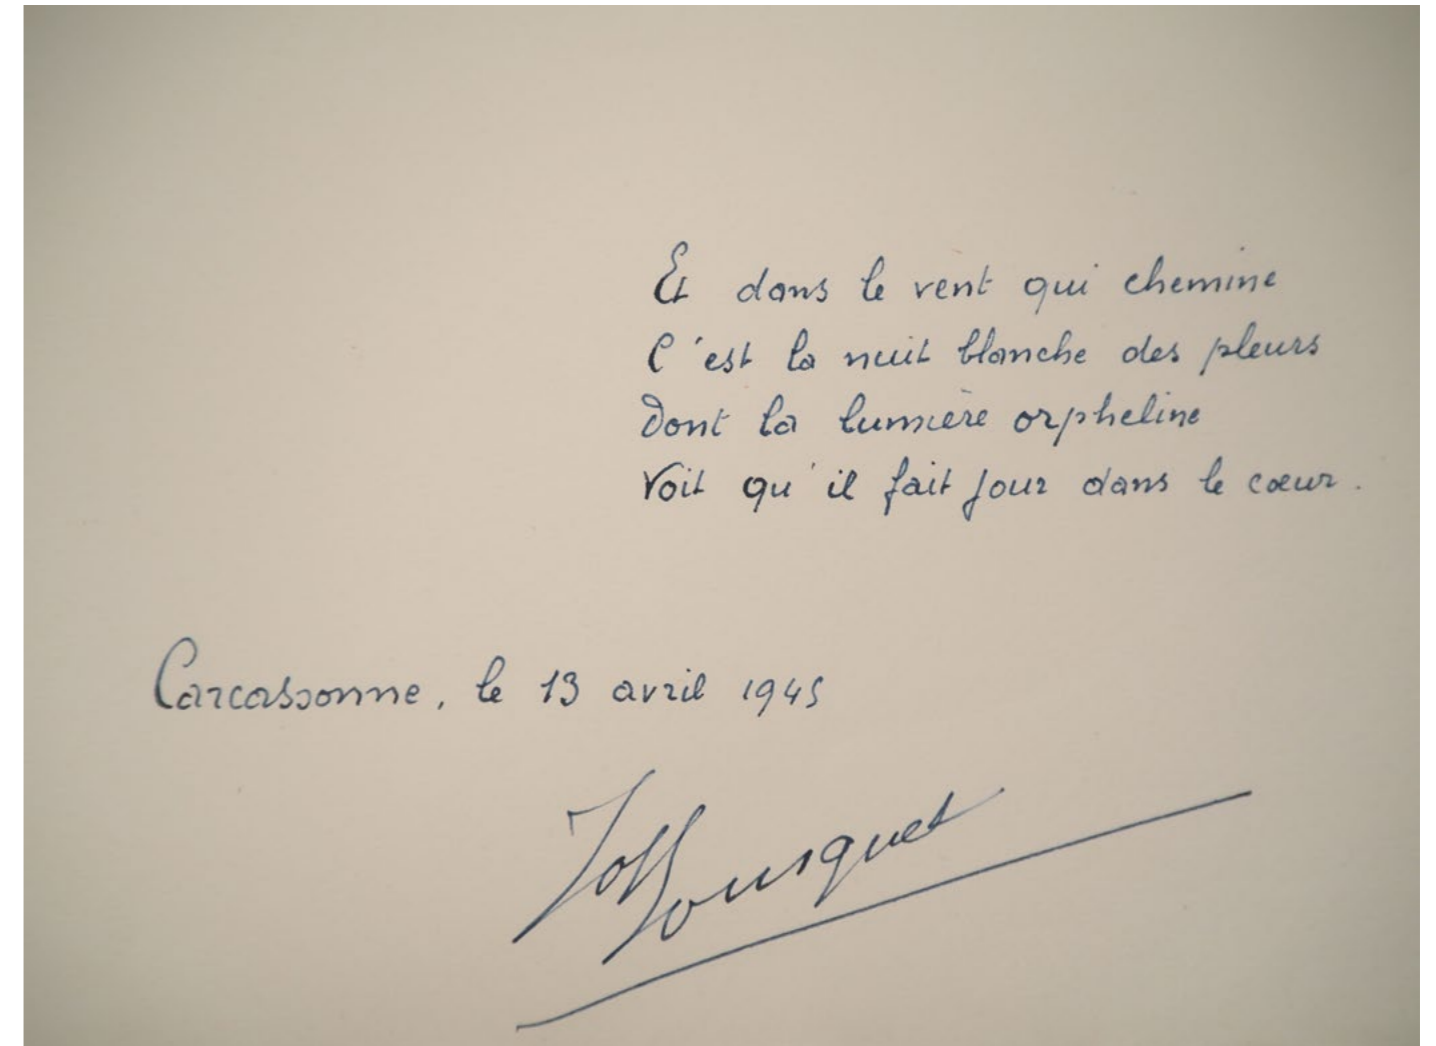 Et dans le vent qui chemine
C'est la nuit blanche des pleurs
Dont la lumière orpheline
Voit qu'il fait jour dans le cœur.
Carcassonne, le 13 avril 1945
Joë Bousquet